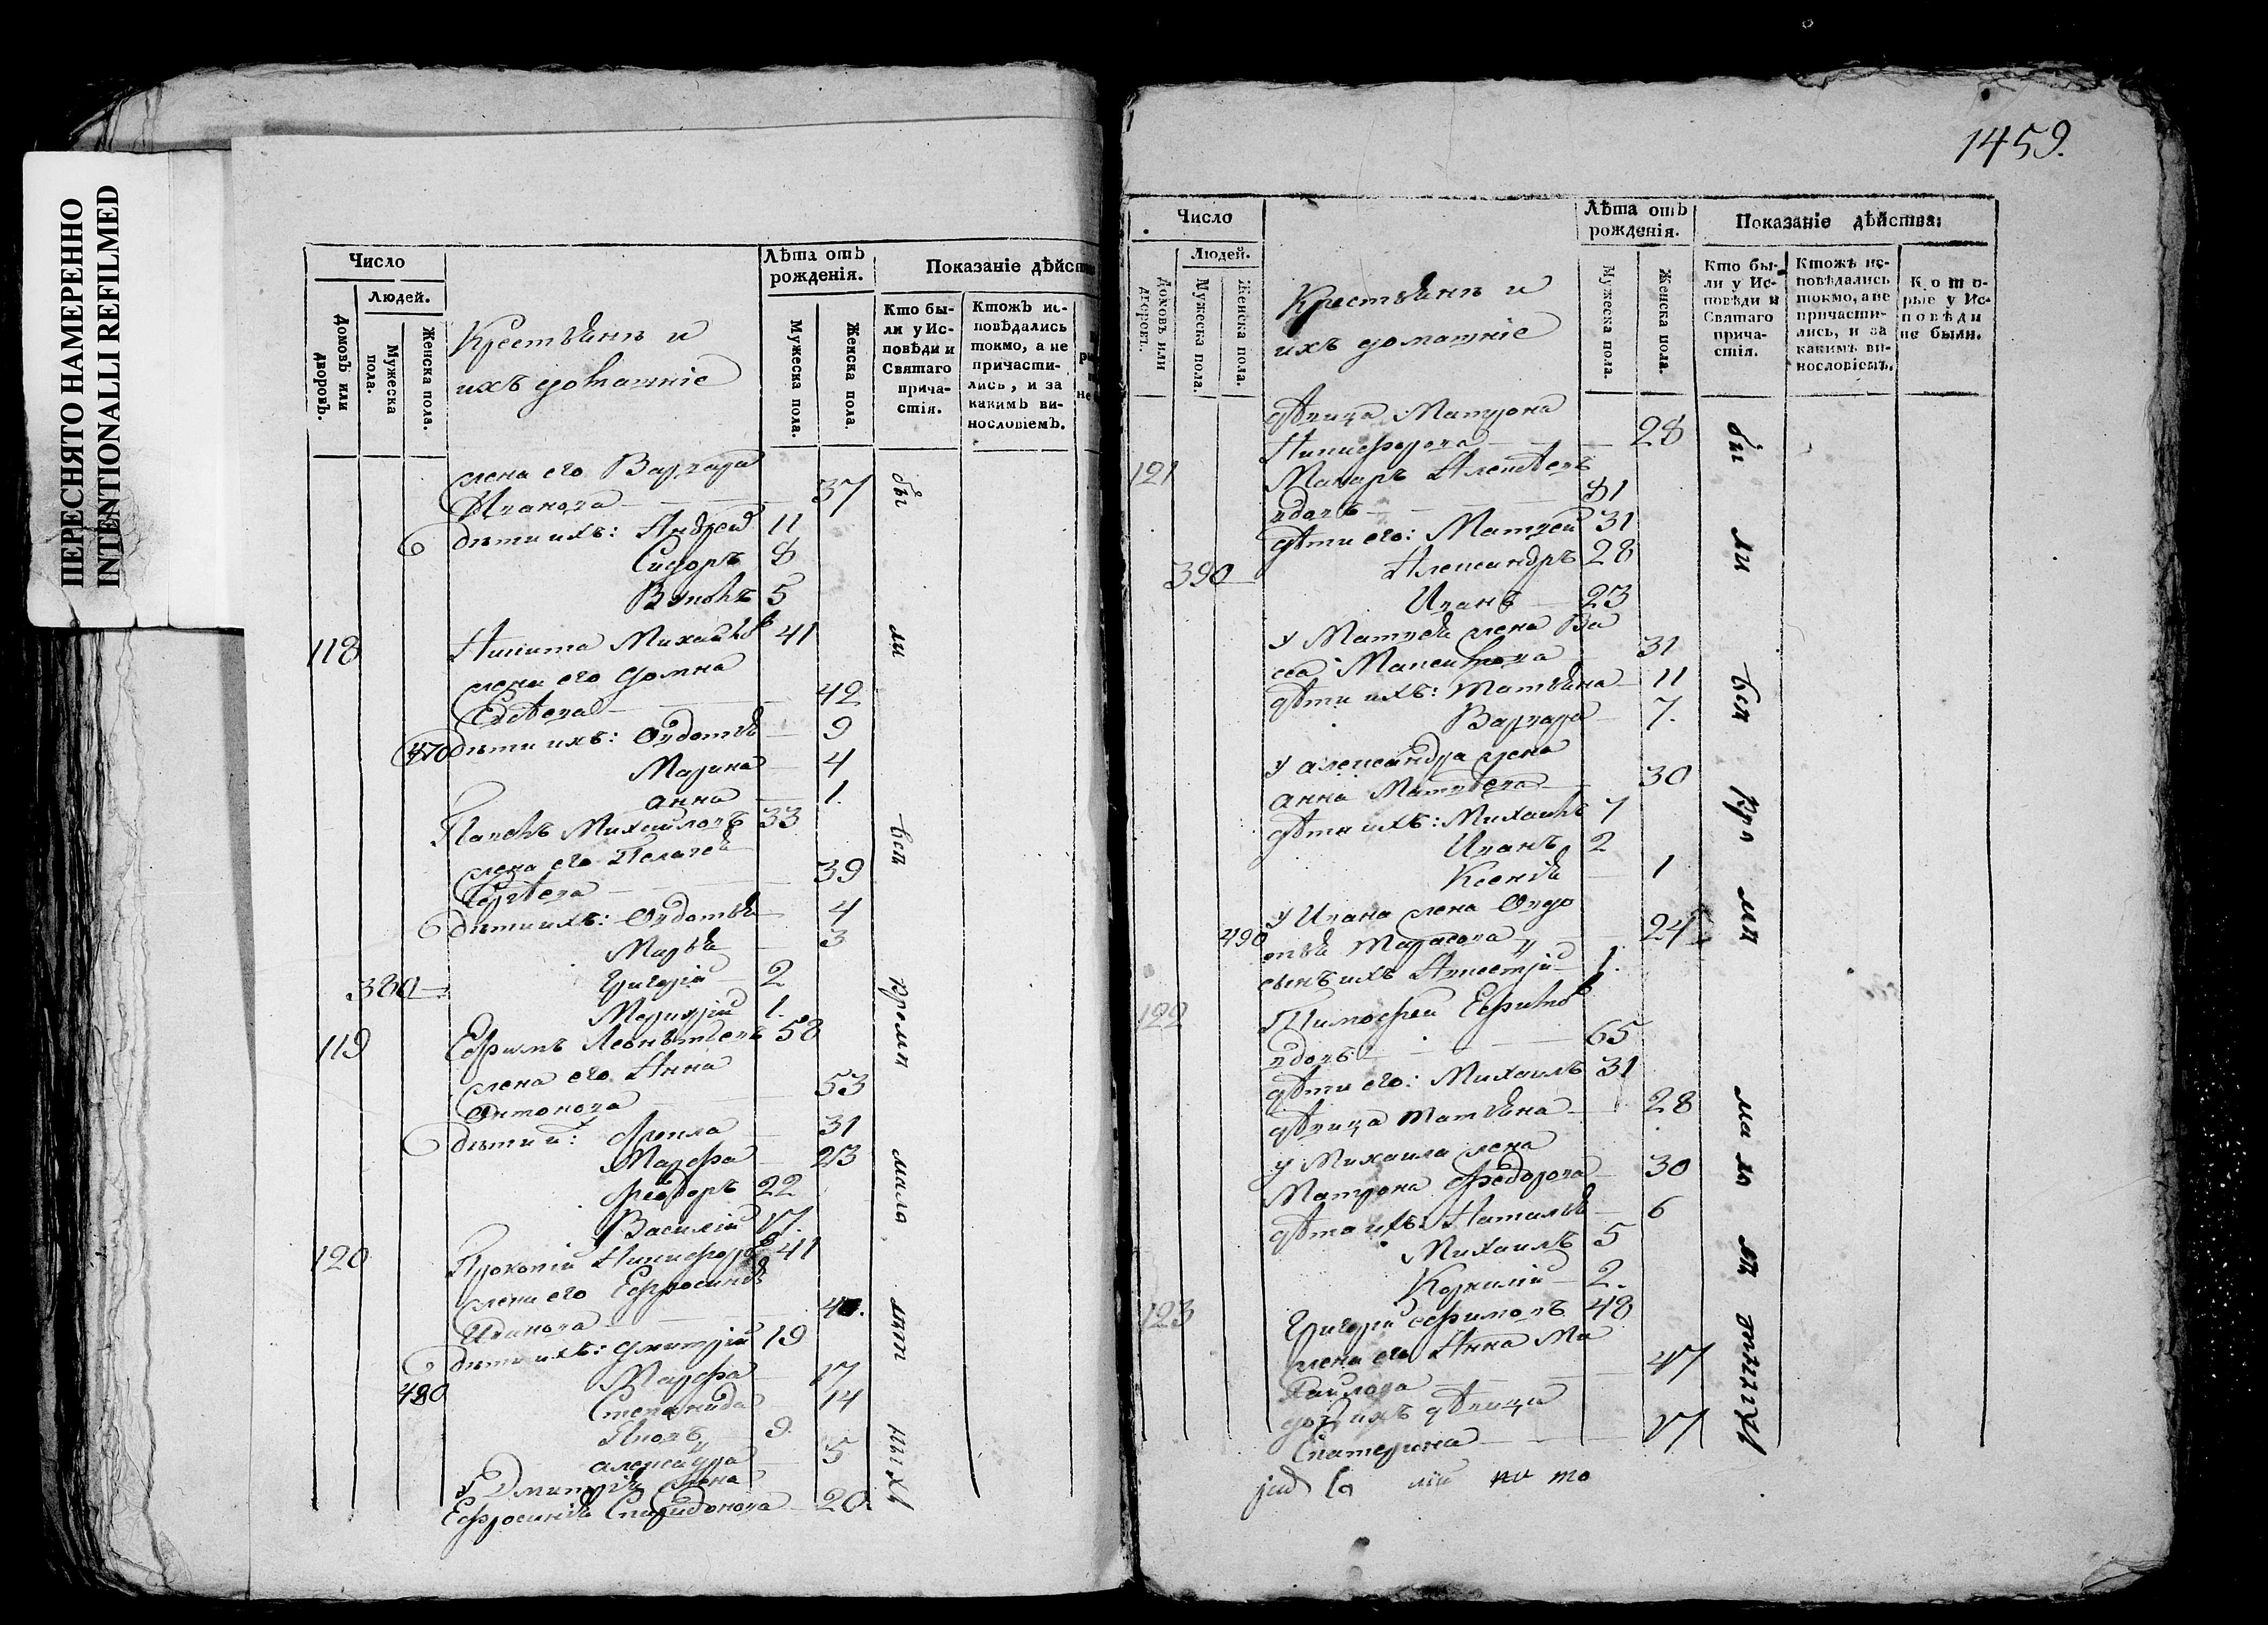 ПЕРЕСНЯТО НАМЕРЕННО
INTENTIONALLI REFILMED
Число
Людей.
Домовъ или дворовъ.
Мужеска пола.
Женска пола.
Крестьянъ и
ихъ домашніе
Лѣта отъ рожденія.
Мужеска пола.
Женска пола.
Показаніе дѣйст
Кто бы-
ли у Ис-
повѣди и
Святаго
прича-
стія.
Ктожъ ис-
повѣдались
токмо, а не
причасти-
лись, и за
какимъ ви-
нословіемъ.
жена его Варвара
Иванова 37
дѣти ихъ: Андрей 11
Сидоръ 8
5
118 Никита Михайловъ 41
жена его Домна
42
470 дѣти ихъ: Овдотья 9
Марина 4
анна 1.
Павелъ Михайловъ 33
жена его Пелагея
Сергѣева 39
дѣти ихъ: Овдотья 4
Марья 3
380 Григорій 2
1.
119 Ефимъ Леонтьевъ 58
жена его Анна
Антонова 53
дѣти их: Фекла 31
Марфа 23
Феодоръ 22
Василій 17.
120 Прокопій Никифоровъ 41
жена его Ефросинья
Иванова 40.
дѣти ихъ: Дмитрій 19
Марфа 17
480 Степанида 14
Яковъ 9.
александра 5
У Дмитрія жена
Ефросинья Спиридонова 20.
бы
ли
всѣ
кромѣ
мала
лѣт
ныхъ
1459.
Число
Людей.
Домовъ или дворовъ.
Мужеска пола.
Женска пола.
Крестьянъ и
ихъ домашніе
Лѣта отъ рожденія.
Мужеска пола.
Женска пола.
Показаніе дѣйства:
Кто бы-
ли у Ис-
повѣди и
Святаго
прича-
стія.
Ктожъ ис-
повѣдались
токмо, а не
причасти-
лись, и за
какимъ ви-
нословіемъ.
Кото-
рые у Ис-
повѣди
не были.
дѣвица Матрона
Никифорова 28
121 Макаръ Алексѣевъ
вдовъ 81
дѣти его: Матвей 31
390 Александръ 28
Иванъ 23
У Матвея жена Ва
са Максимова 31
дѣти ихъ: Татьяна 11
Варвара 7.
У александра жена
анна Матвѣева 30
дѣти ихъ: Михаилъ 7
Иванъ 2
Ксенія 1
490 У Ивана жена Овдо
тья Тарасова 24
сынъ ихъ 1.
122 Тимофей Ефимовъ
вдовъ 65
дѣти его: Михаилъ 31
дѣвица Татьяна 28
у Михаила жена
Матрона Федорова 30
дѣти ихъ: Наталья 6
Михаилъ 5
Корнилій 2.
123 Григорій Ефимовъ 48
жена его Анна Ми
хайлова 47
дочь ихъ дѣвица
Екатерина 17
бы
ли
всѣ
кро
мѣ
ма
лѣ